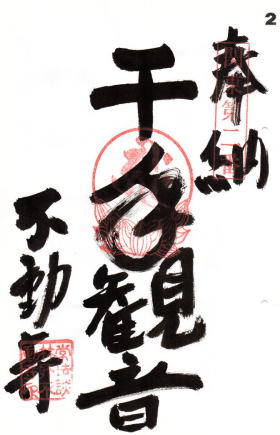 2
奉納
第二番
千手観音
不動寺